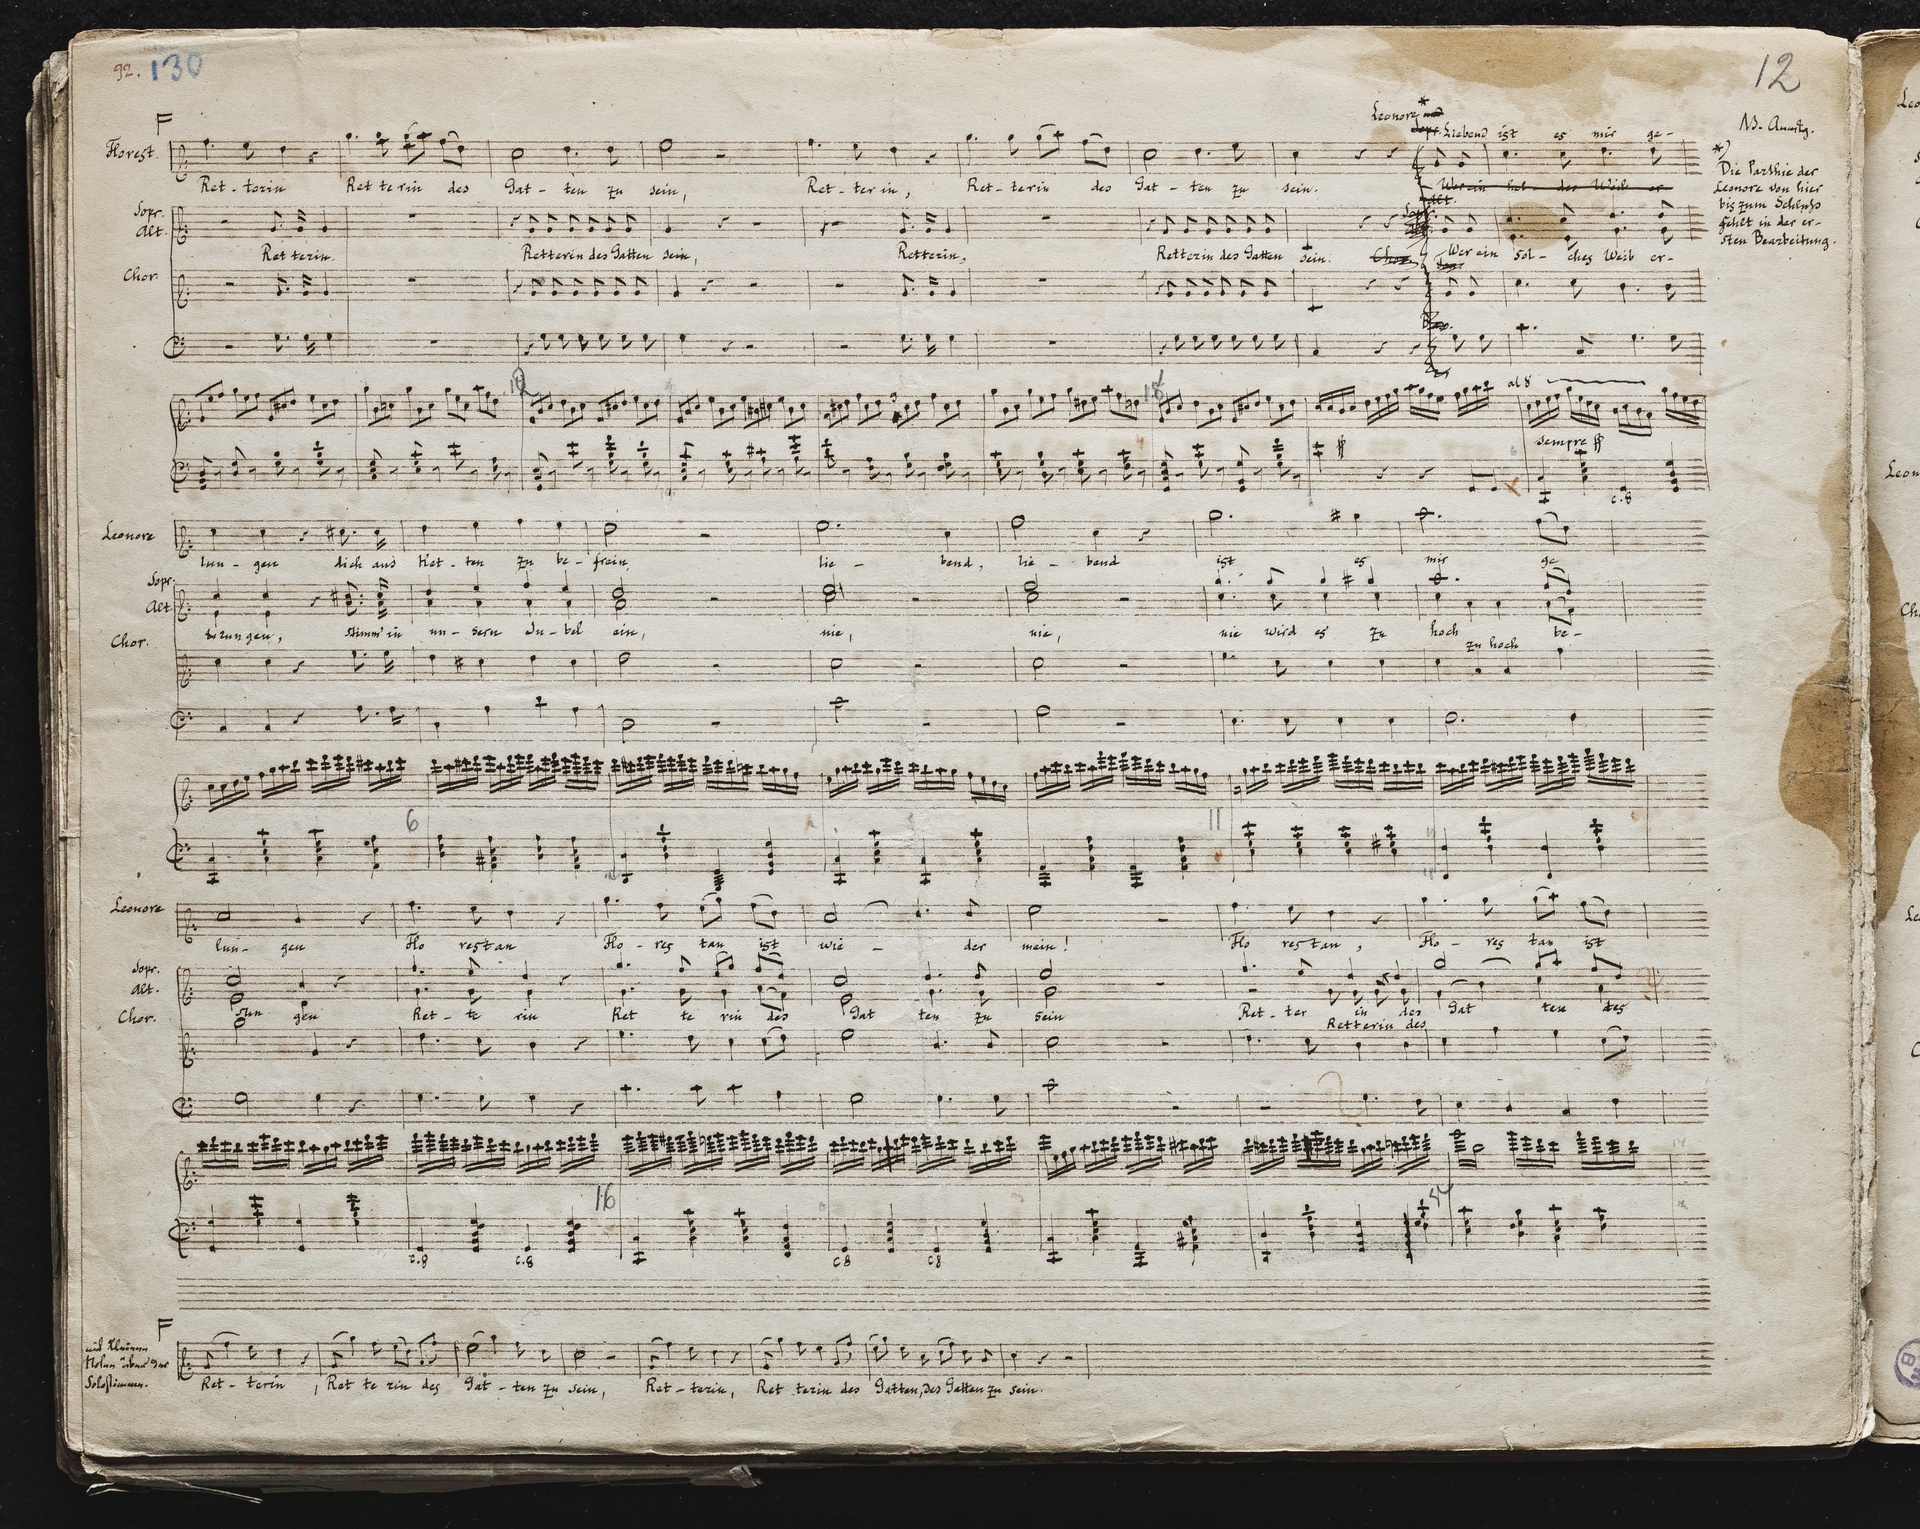 92. 130
12
F
Leonore
Liebend ist es mir ge-
Florest.
Ret - terin Ret te rin des Gat - ten zu sein, Ret - ter in, Ret - terin des Gat - ten zu sein.
*)
Die Parthie der
Leonore von hier
bis zum Schluss
fehlt in der er-
sten Bearbeitung.
Sopr.
Alt.
Ret terin. Retterin des Gatten sein, Retterin, Retterin des Gatten sein. Wer ein sol - ches Weib er-
Chor.
al 8
sempre ff
ff
c. 8
Leonore
lun - gen dich aus Ket - ten zu be - frein, lie - bend, lie - bend ist es mir ge
Sopr.
Alt
rungen, stimm' in un - sern Ju - bel ein, nie, nie, nie wird es zu hoch be-
Chor.
zu hoch
6
11
Leonore
lun - gen Flo restan Flo - res tan ist wie - der mein! Flo restan, Flo - res tan ist
Sopr.
Alt.
Chor.
sun gen Ret - te rin Ret te rin des Gat ten zu sein Ret - ter in des Gat ten des
Retterin des
16
c. 8 c. 8 c8 c8
F
Solostimmen.
Ret - terin, Ret te rin des Gat - ten zu sein, Ret - terin, Ret terin des Gatten, des Gatten zu sein.